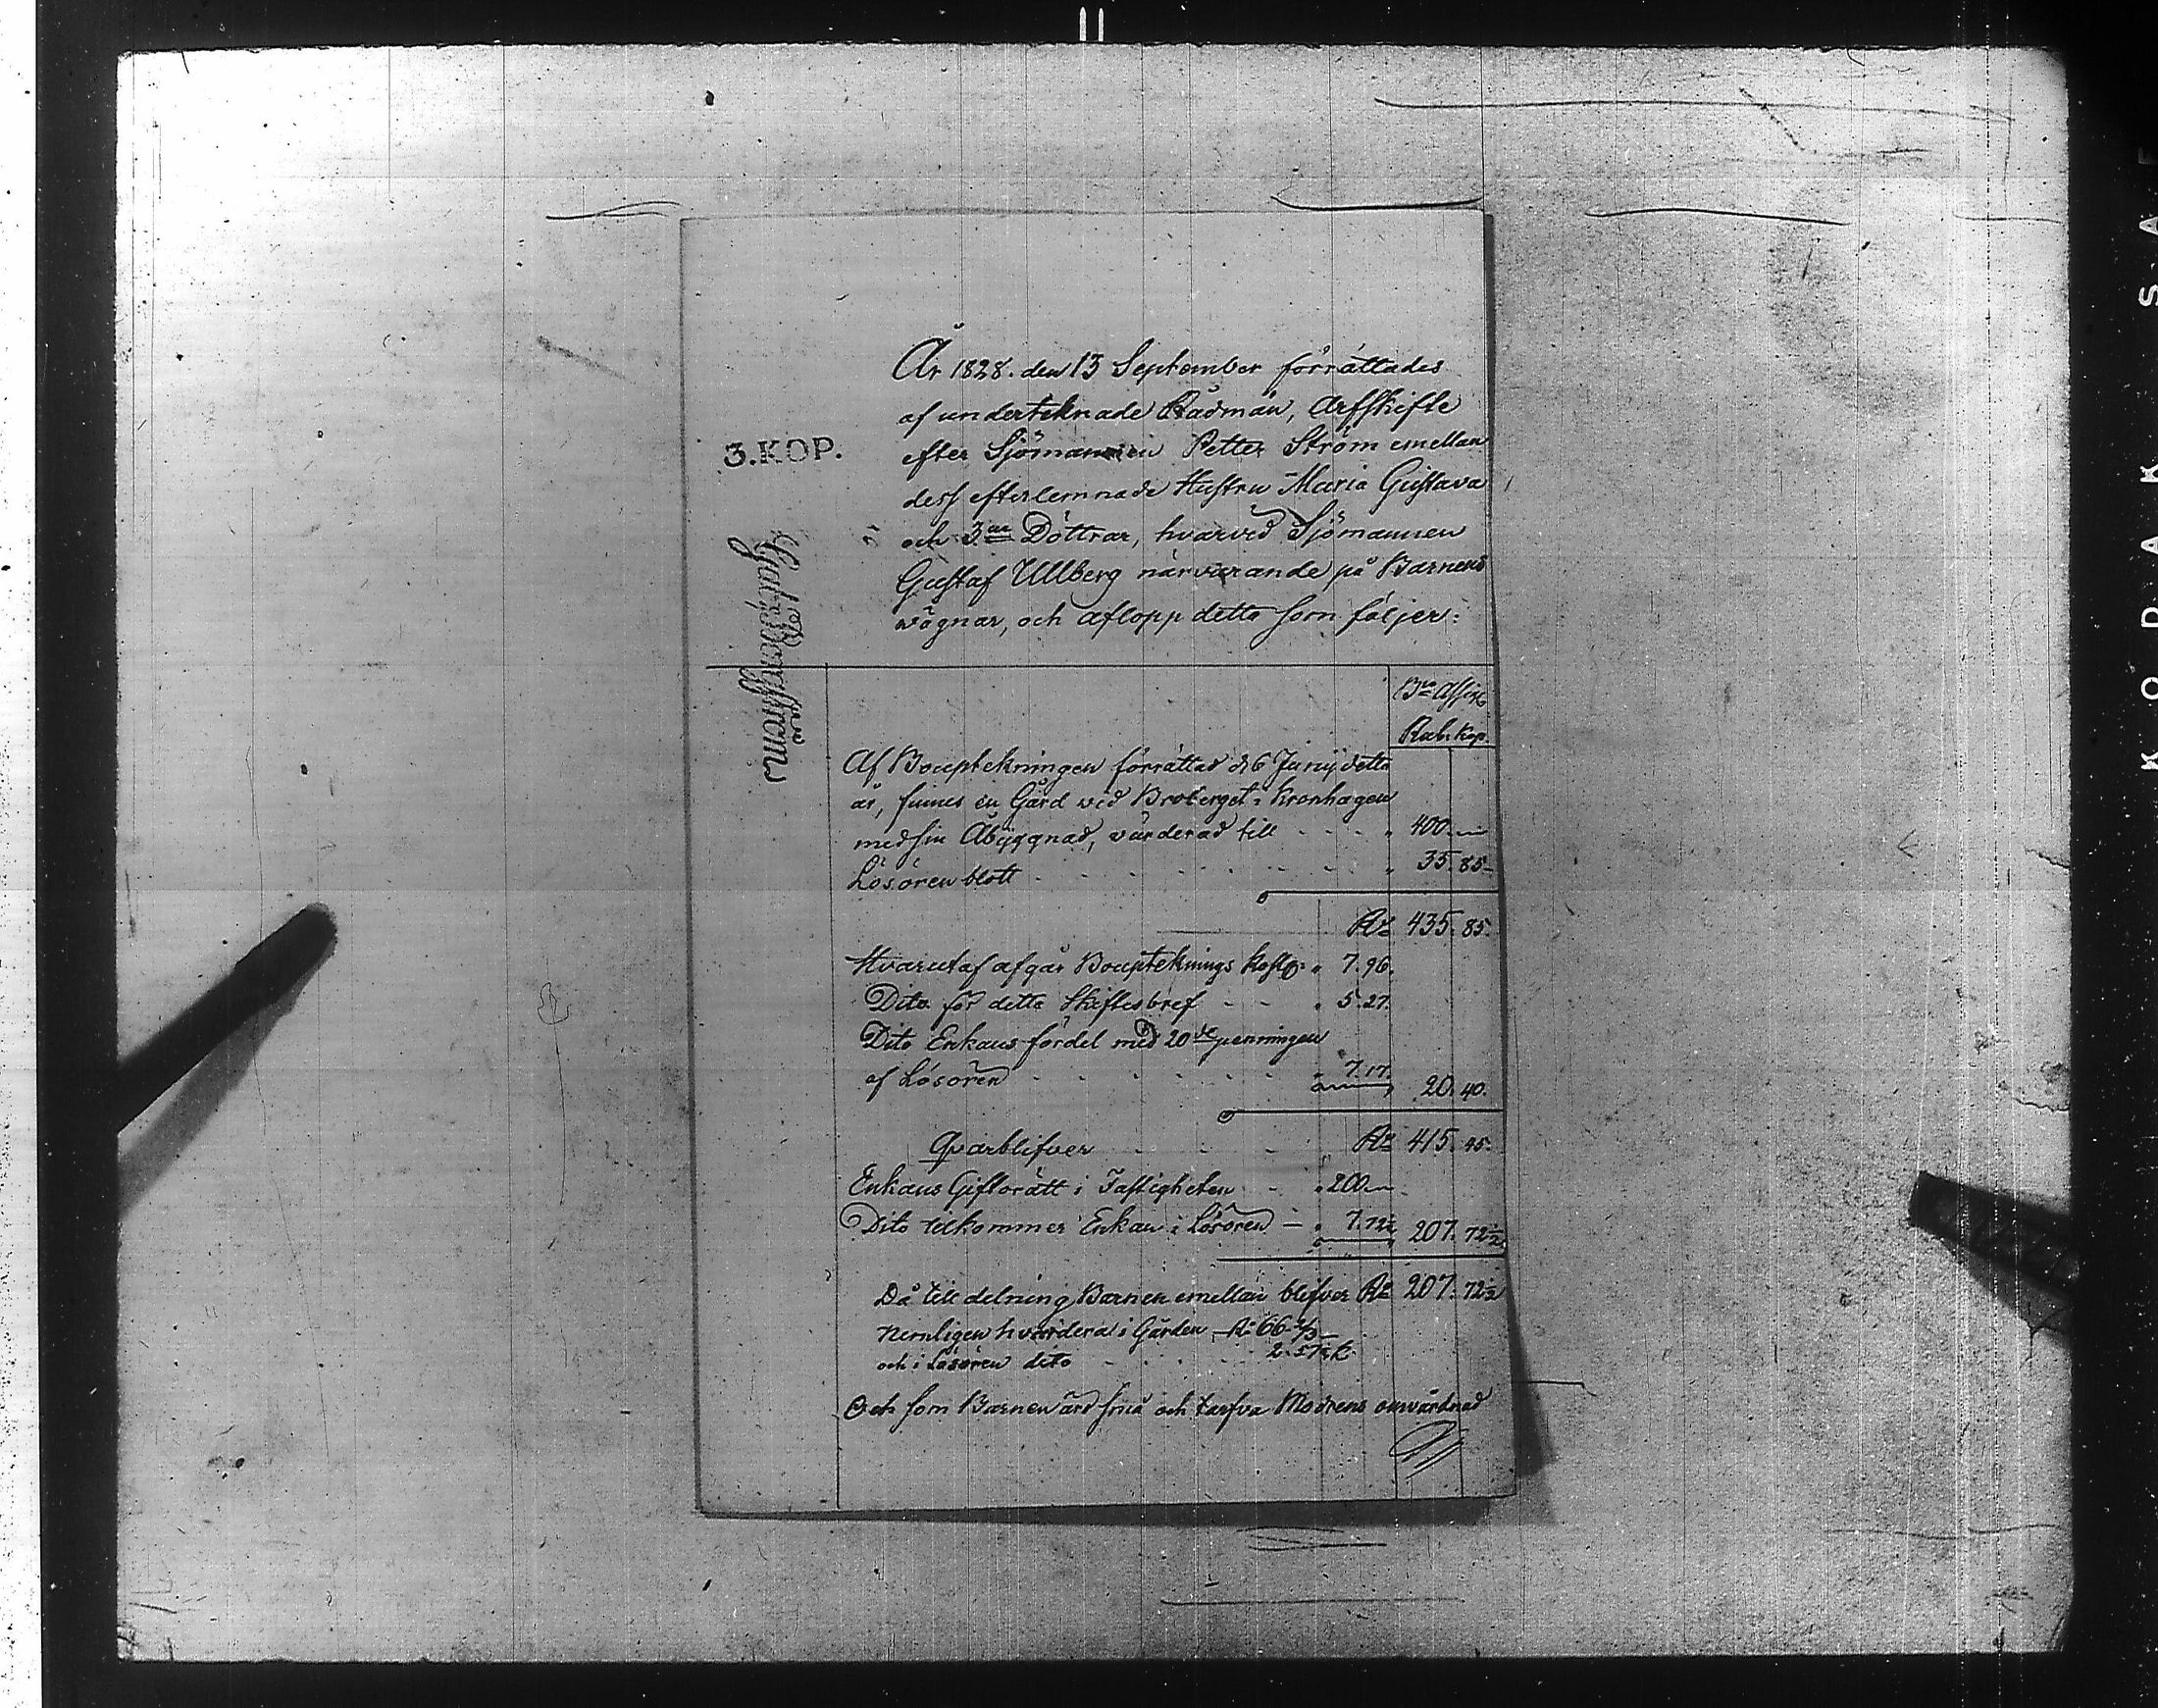 År 1828. den 13 September förrättades
af underteknade Rådmän, Arfskifte
3. KOP.
efter Sjömannen Petter Ström emellan
dess efterlemnade Hustru Maria Gustava
och 3ne Döttrar, hvarvid Sjömannen
Gustaf Ullberg närvarande på Barnens
vägnar, och aflopp detta som följer:
Bco Assig
Rub. Kop.
Af Bouptekningen förrättad d 6 Junij detta
år, finnes en Gård vid Broberget i Kronhagen
med sin Åbyggnad, värderad till - - - " 400.—
Lösören blott - - - - - - - " 35. 85-
Ro 435. 85.
Hvarutaf afgår Bouptecknings kostn: " 7. 96.
Dito för detta Skiftesbref - - " 5. 27.
Dito Enkans fördel med 20de penningen
af Lösören - - - - - - " 7. 17. 20. 40.
Qvarblifver - - - Ro 415. 45.
Enkans Giftorätt i Fastigheten - " 200.—
Dito tilkommer Enkan i Lösören — " 7. 72½ 207. 72½
Då till delning Barnen emellan blifver Ro 207. 72½
Nemligen hvardera i Gården R. 66 2/3 —
och i Lösören dito - - - - 2. 57½ k
Och som Barnen äro små och tarfva Modrens omvårdnad
KODAK SAFE